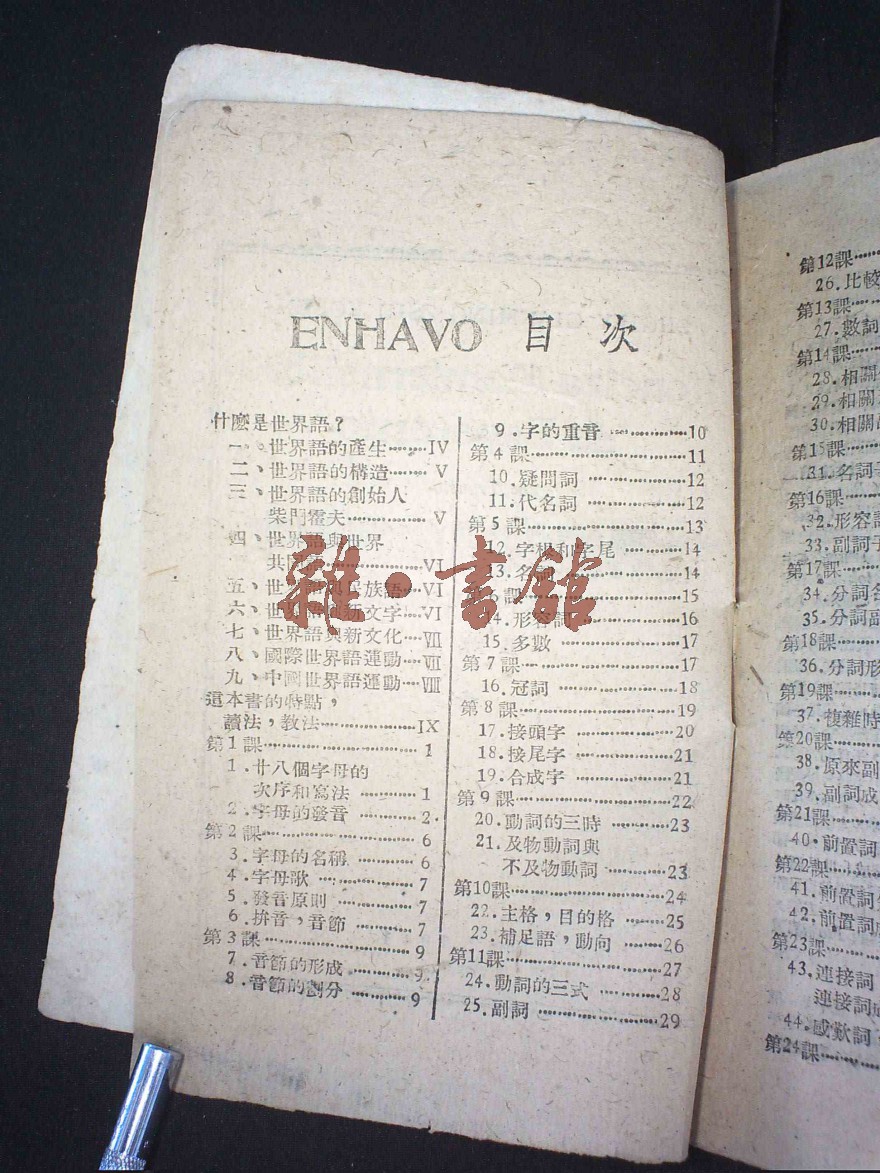 ENHAVO 目次
什麼是世界語？
一、世界語的產生……IV
二、世界語的構造……V
三、世界語的創始人
柴門霍夫……V
四、世界語與世界
共……VI
五、世……民族語…VI
六、世界語……新文字…VI
七、世界語與新文化…VII
八、國際世界語運動…VII
九、中國世界語運動…VIII
這本書的特點，
讀法，教法……IX
第1課……1
1.廿八個字母的
次序和寫法……1
2.字母的發音……2
第2課……6
3.字母的名稱……6
4.字母歌……7
5.發音原則……7
6.拚音，音節……7
第3課……9
7.音節的形成……9
8.音節的劃分……9
9.字的重音……10
第4課……11
10.疑問詞……12
11.代名詞……12
第5課……13
12.字根和字尾……14
13.名……14
6課……15
14.形容詞……16
15.多數……17
第7課……17
16.冠詞……18
第8課……19
17.接頭字……20
18.接尾字……21
19.合成字……21
第9課……22
20.動詞的三時……23
21.及物動詞與
不及物動詞……23
第10課……24
22.主格，目的格……25
23.補足語，動向……26
第11課……27
24.動詞的三式……28
25.副詞……29
雜·書館
第12課……
26.比較
第13課……
27.數詞
第14課……
28.相關
29.相關
30.相關
第15課……
31.名詞
第16課……
32.形容
33.副詞
第17課……
34.分詞
35.分詞副
第18課……
36.分詞形
第19課……
37.複雜時
第20課……
38.原來副
39.副詞成
第21課……
40.前置詞
第22課……
41.前置詞
42.前置詞
第23課……
43.連接詞
連接詞
44.感歎詞
第24課……